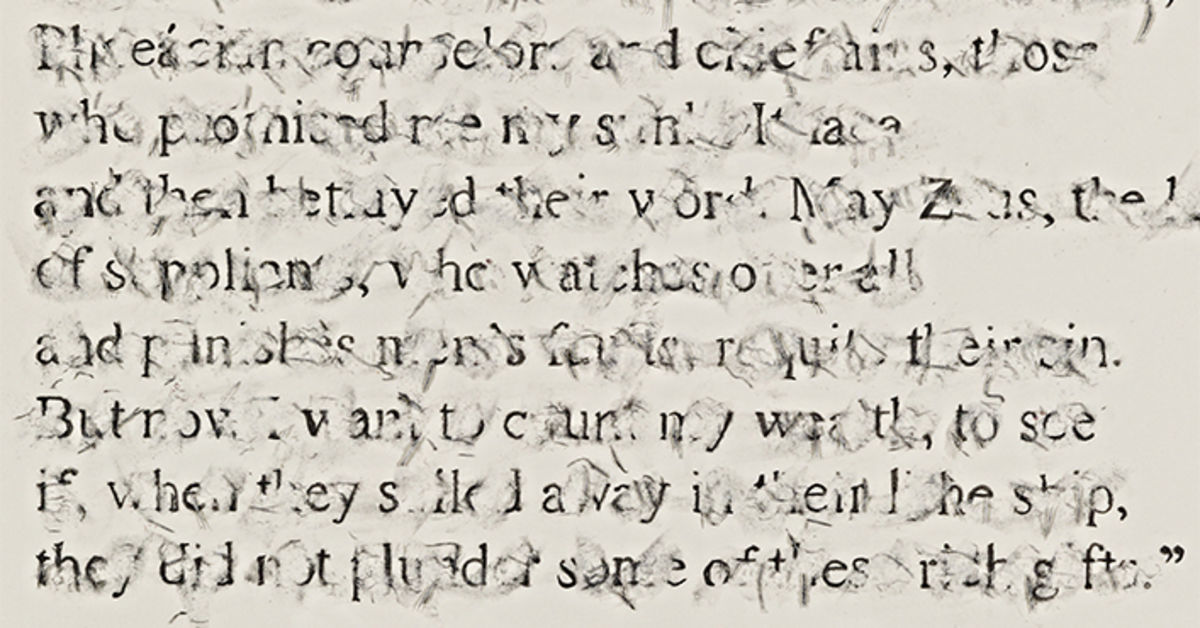 Phaeácian counselors and chieftains, those
who promised me my sunlit Ithaca
and then betrayed their word. May Zeus, the
of suppliants, who watches over all
and punishes men's faults, requite their sin.
But now I want to count my wealth, to see
if, when they sailed away in their lithe ship,
they did not plunder some of these rich gifts.”